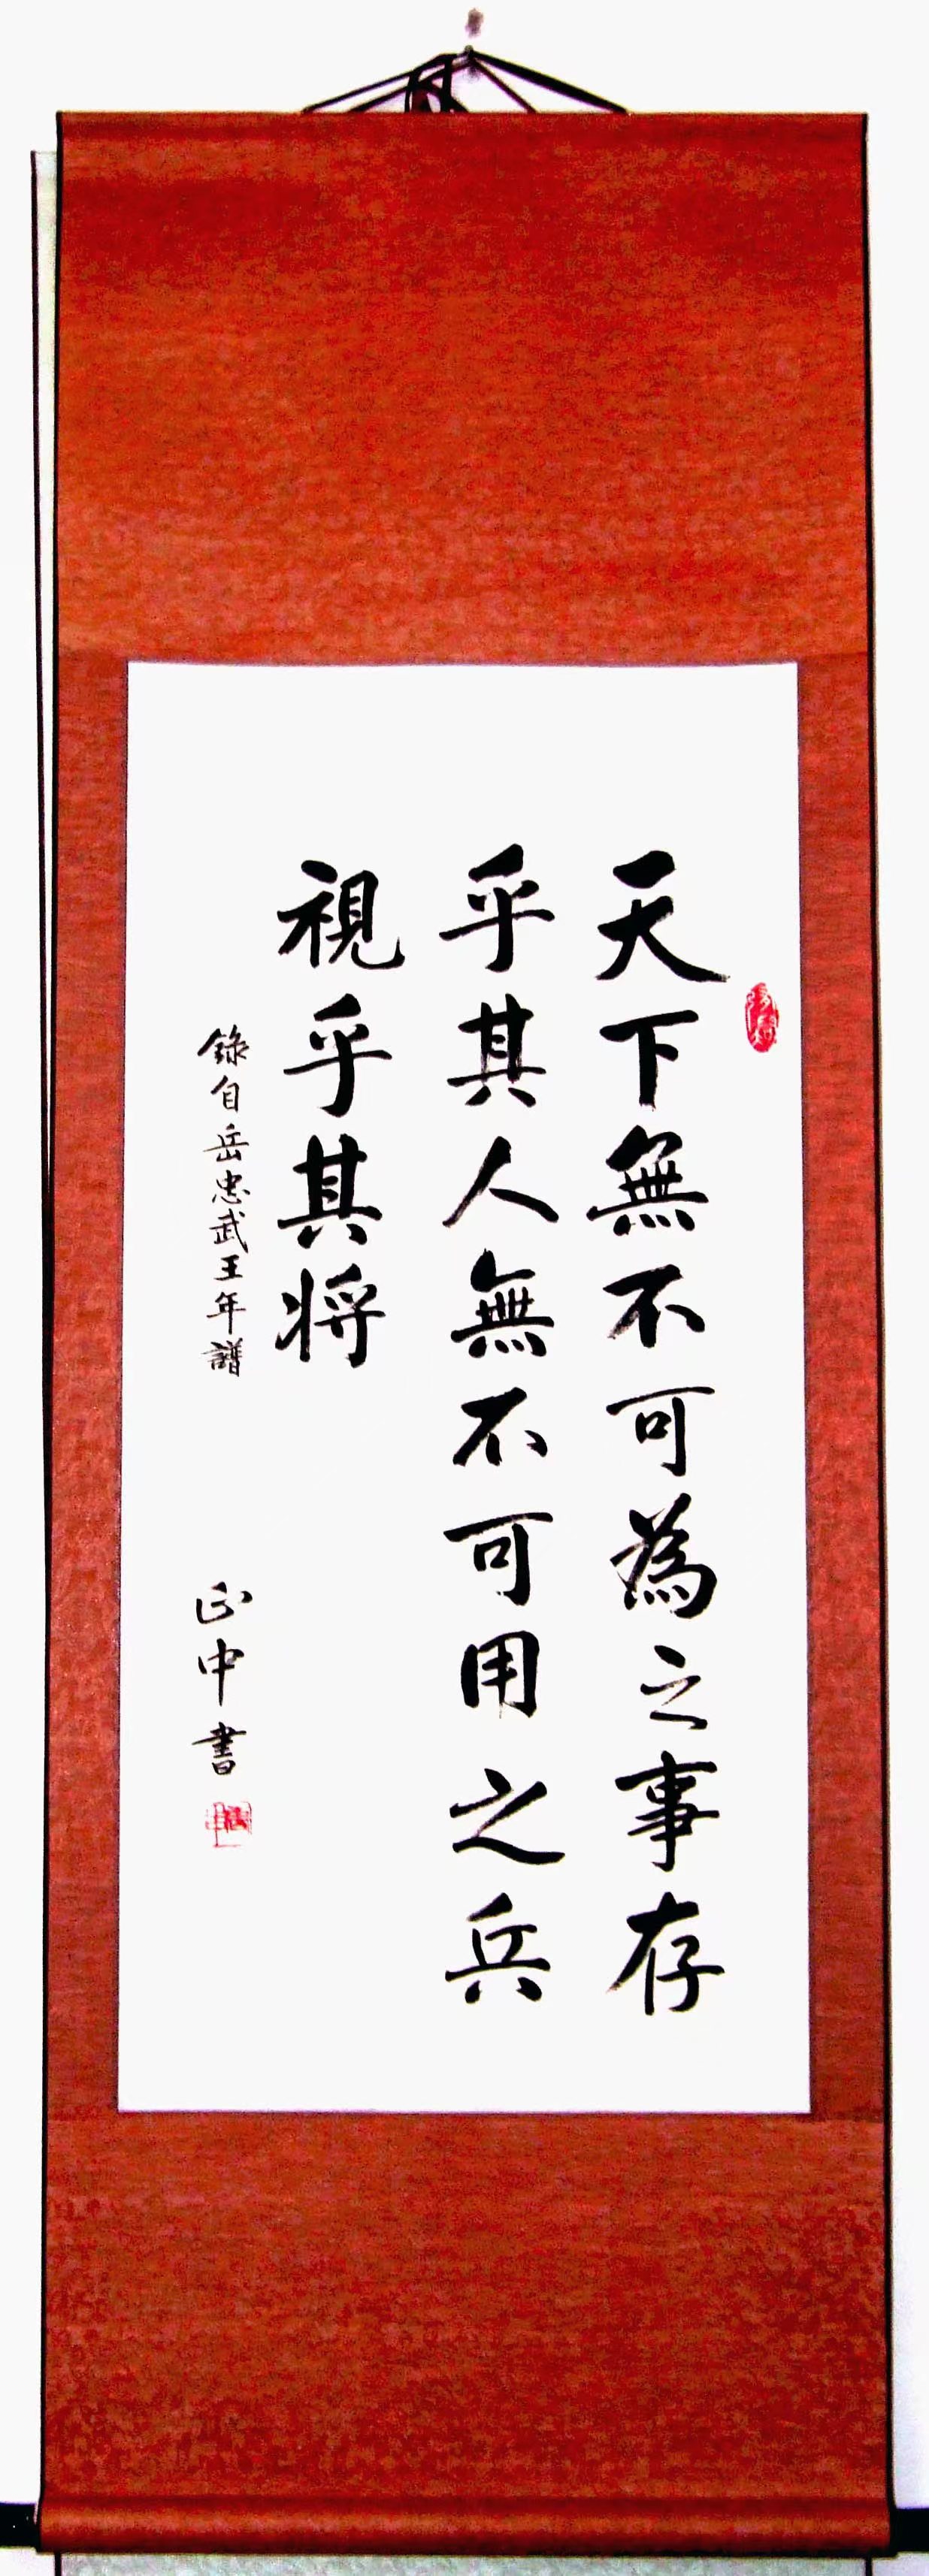 天下無不可為之事存
乎其人無不可用之兵
視乎其将
錄自岳忠武王年譜
正中書